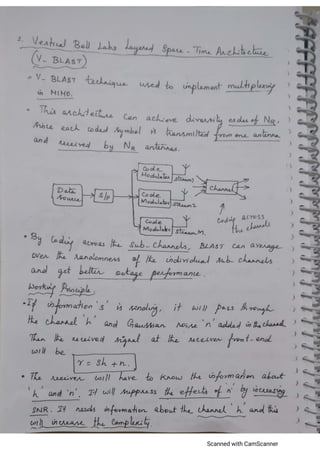 2. Vertical Bell Labs Layered Space-Time Architecture
(V-BLAST)
V-BLAST technique used to implement multiplexing
in MIMO.
This architecture can achieve diversity order of NR,
since each coded symbol is transmitted from one antenna
and received by NR antennas.
Data
Source
S/P
Code
Modulator
stream1
Code
Modulator
stream2
Code
Modulator
stream M
Channel
Coding across
the channels
By Coding across the Sub-channels, BLAST can average
over the randomness of the individual sub-channels
and get better outage performance.
Working Principle.
If information 's' is sending, it will pass through
the channel 'h' and Gaussian noise 'n' added in the channel
Then the received signal at the receiver front-end
will be
r = sh + n.
The receiver will have to know the information about
'h' and 'n'. It will suppress the effects of 'n' by increasing
SNR. It needs information about the channel 'h' and this
will increase the complexity
Scanned with CamScanner